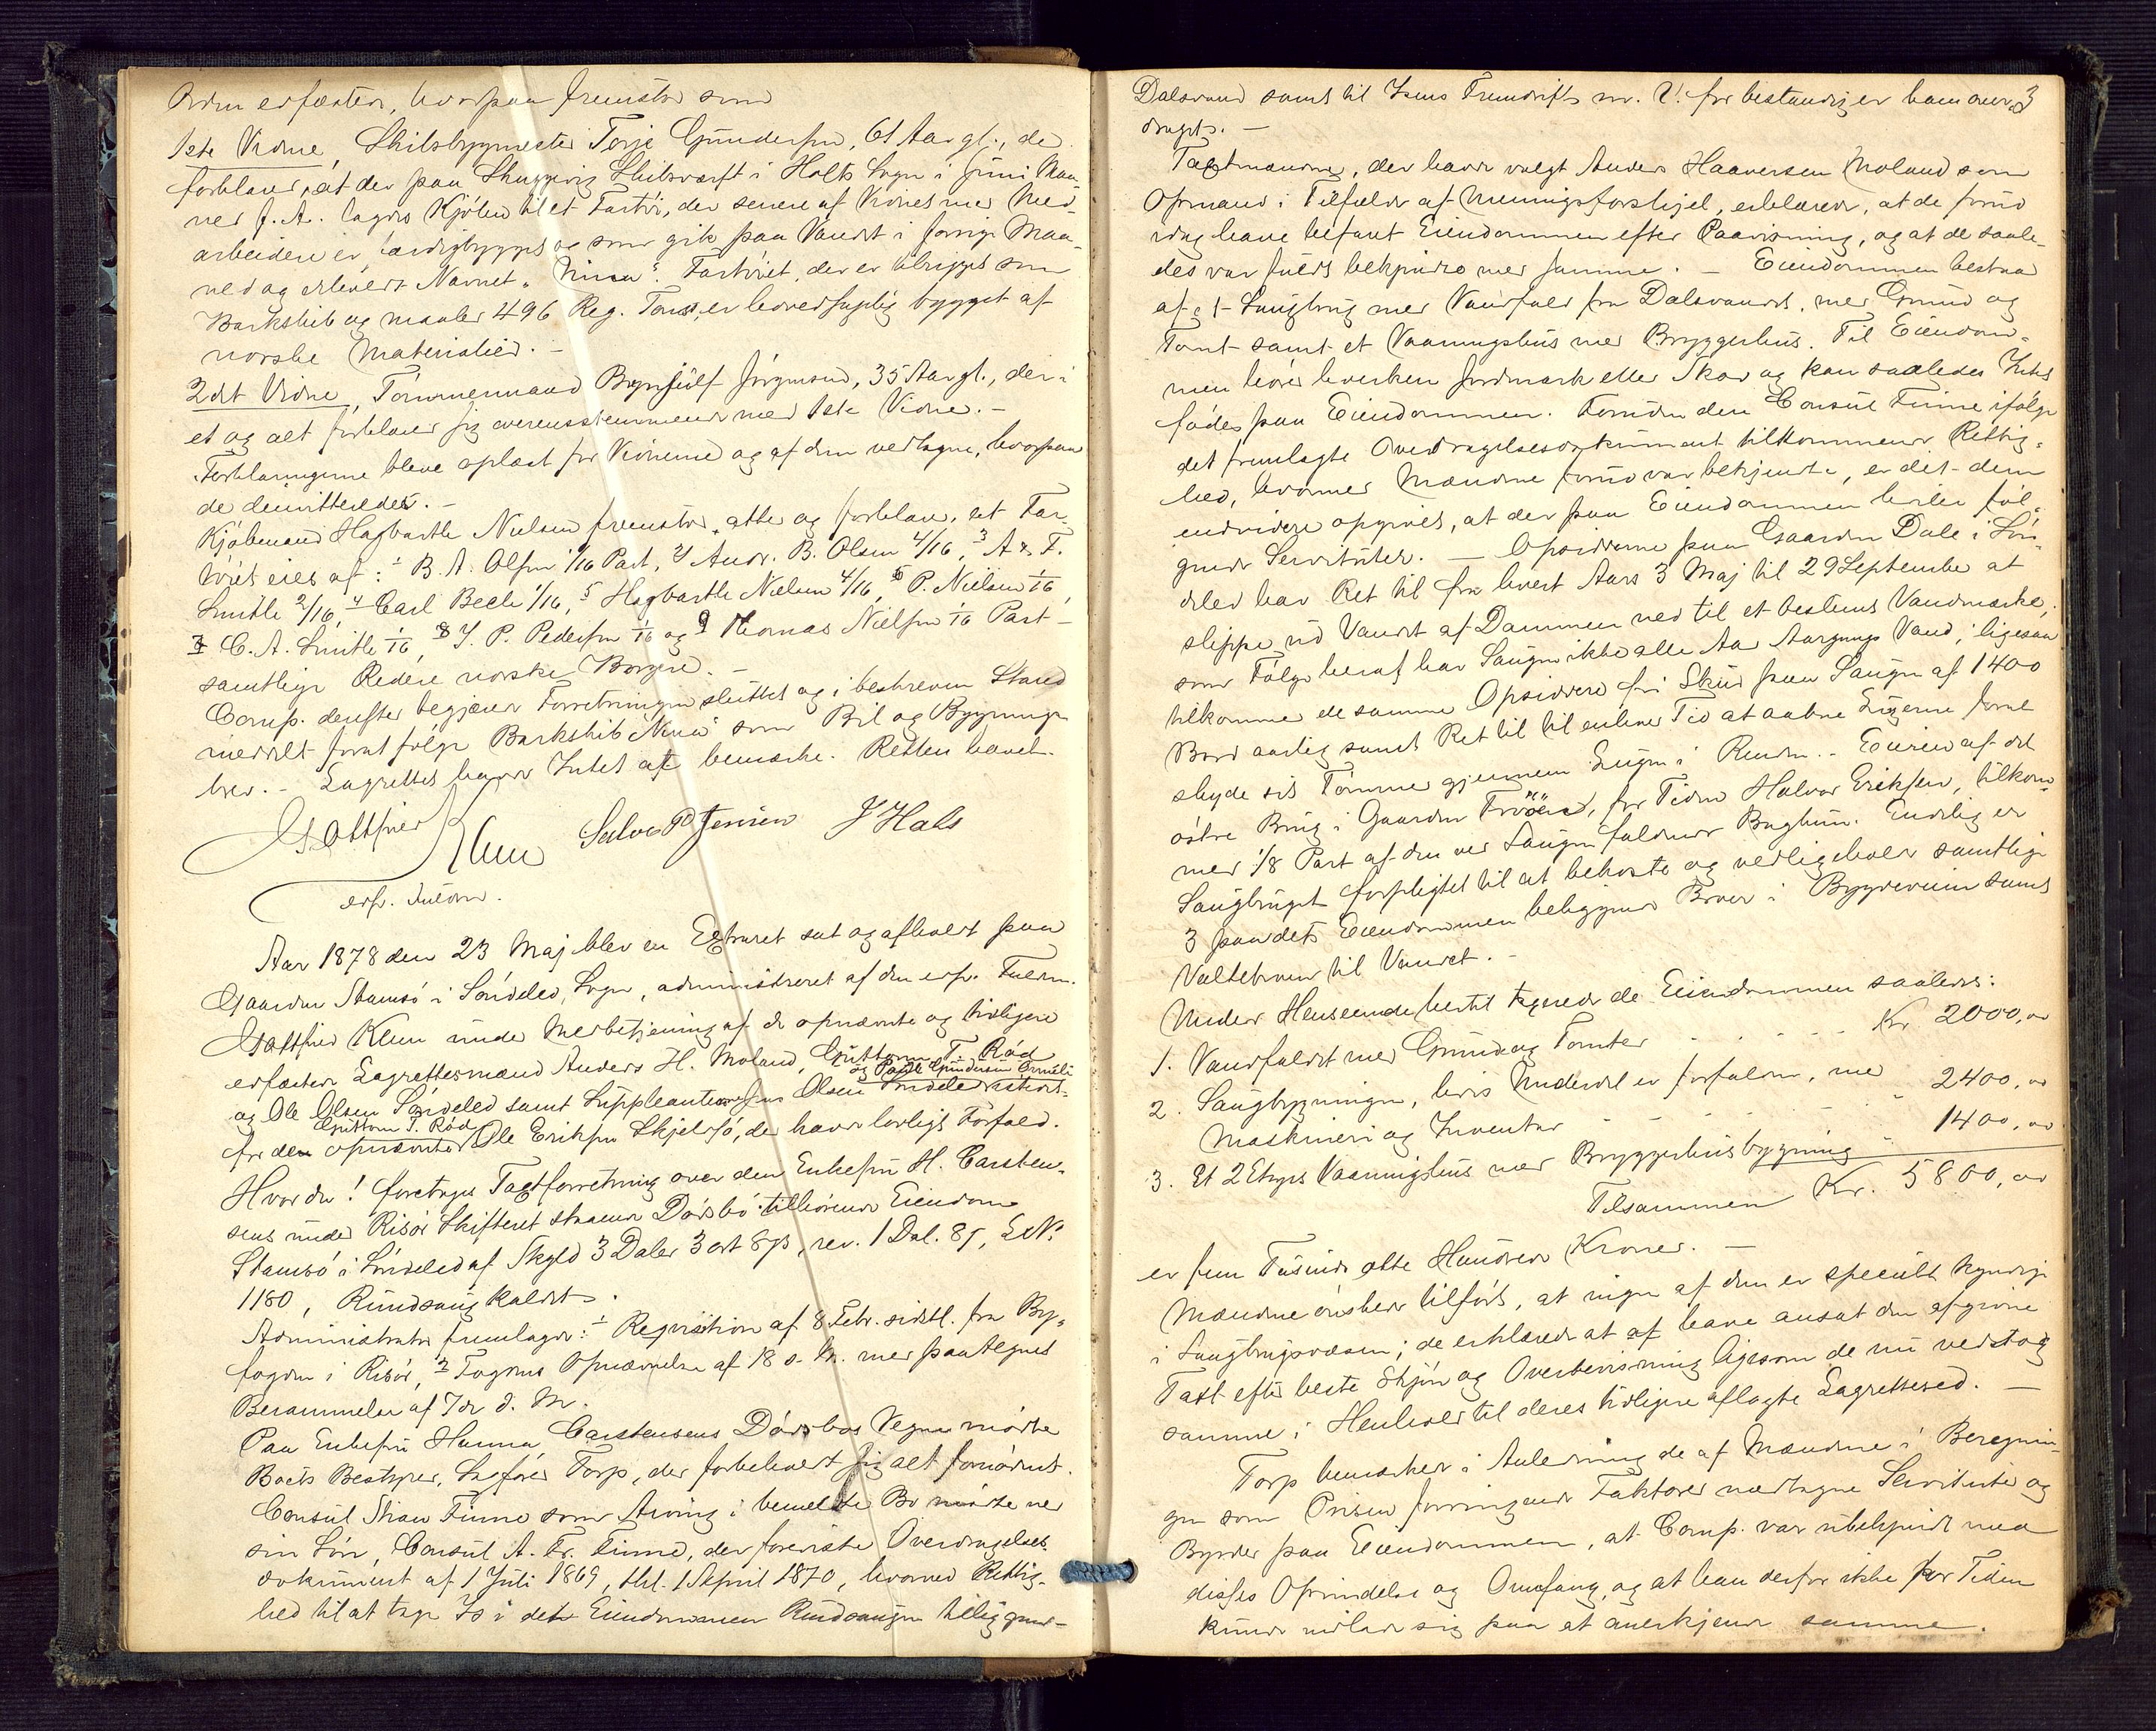 Orden erfarten, hvorpaa fremstod som
1ste Vidne, Skibsbygmester Terje Gundersen, 61 Aar gl., der
forklarer, at der paa Skuggevig Skibsværft i Holts Sogn i Juni Maa-
ned f. A. lagdes Kjølen til et Fartøi, der senere af Vidnet med Med-
arbeidere er færdigbygget og som gik paa Vandet i forrige Maa-
ned og erholdt Navnet „Nina“. Fartøiet, der er tilrigget som
Barkskib og maaler 496 Reg. Tons, er hovedsagelig bygget af
norske Materialier. –
2det Vidne, Tømmermand Brynjulf Jørgensen, 35 Aar gl., der i
et og alt forklarer sig overensstemmende med 1ste Vidne. –
Forklaringerne bleve oplæst for Vidnerne og af dem vedtagne, hvorpaa
de demitteredes. –
Kjøbmand Hagbarth Nielsen fremstod, atter og forklarer, at Far-
tøiet eies af: 1 B. A. Olsen 1/16 Part, 2 Andr. B. Olsen 4/16, 3 A. F.
Smith 2/16, 4 Carl Bech 1/16, 5 Hagbarth Nielsen 4/16, 6 P. Nielsen 1/16,
7 C. A. Smith 1/16, 8 J. P. Pedersen 1/16 og 9 Thomas Nielsen 1/16 Part –
samtlige Redere norske Borgere. –
Comp. derefter begjærer Forretningen sluttet og i beskreven Stand
meddelt for at følge Barkskib „Nina“ som Bil og Bygnings-
brev. – Lagrettet havde Intet at bemærke. Retten hævet.
Gottfried Klem Salve P Jensen J Hals
esfr. Fuldm.
Aar 1878 den 23 Maj blev en Extraret sat og afholdt paa
Gaarden Stamsø i Søndeled Sogn, administreret af den esfr. Fuldm.
Gottfried Klem under Medbetjening af de opnævnte og tidligere
erfarten Lagrettesmænd Anders H. Moland, Guttorm T. Rød
og Ole Olsen Søndeled samt Suppleanterne Jens Olsen Søndeled istedet-
og Peder Gundersen
for den opnævnte Guttorm T. Rød Ole Eriksen Skjelsø, der havde lovligt Forfald.
Hvor da! foretoges Taxtforretning over den Enkefru H. Carsten-
sens under Risør Skifteret staaende Dødsbo tilhørende Eiendom
Stamsø i Søndeled af Skyld 3 Daler 3 ort 8 ß, rev. 1 Dal. 8 ß, L. No.
1180, Rundsaug kaldet.
Administrator fremlagde: 1 Reqvisition af 8 Febr. sidstl. fra By-
fogden i Risør, 2 Fogdens Opnævnelse af 18 s. M. med paategnet
Berammelse af 7de d. M.
Paa Enkefru Hanna Carstensens Dødsbos Vegne mødte
Boets Bestyrer, Sagfører Torp, der forbeholdt sig alt fornødent.
Consul Stian Finne som Arving i bemeldte Bo mødte ved
sin Søn, Consul A. Fr. Finne, der foreviste Overdragelses-
dokument af 1 Juli 1869, thl. 1 April 1870, hvorved Rettig-
hed til at tage Is i det Eiendommen Rundsaugen tiliggende
3
Dalsvand samt til Isens Fremdrift m. V. for bestandig er ham over-
draget. –
Taxtmændene, der havde valgt Anders Haaversen Moland som
Opmand i Tilfælde af Meningsforskjel, erklærede, at de forud
idag have befaret Eiendommen efter Paavisning, og at de saale-
des var fuldt bekjendte med samme. – Eiendommen bestaar
af et Saugbrug med Vandfald fra Dalsvandet, med Grund og
Tomt samt et Vaaningshus med Bryggerhus. Til Eiendom-
men hører hverken Jordmark eller Skov og kan saaledes Intet
fødes paa Eiendommen. Foruden den Consul Finne ifølge
det fremlagte Overdragelsesdokument tilkommende Rettig-
hed, hvormed Mændene forud var bekjendte, er det dem
endvidere opgivet, at der paa Eiendommen hviler føl-
gende Servituter. – Opsidderne paa Gaarden Dale i Søn-
deled har Ret til fra hvert Aars 3 Maj til 29 September at
slippe ud Vandet af Dammen ned til et bestemt Vandmærke,
som Følge heraf har Saugen ikke alle Aar Aargangs Vand; ligesaa
tilkommer de samme Opsiddere fri Skur paa Saugen af 1400
Bord aarlig samt Ret til til enhver Tid at aabne Lugerne for at
skyde sit Tømmer gjennem Lugen i Renden. – Eieren af det
østre Brug i Gaarden Trøen, for Tiden Halvor Eriksen, tilkom-
mer 1/8 Part af den ved Saugen faldende Baghun. Endelig er
Saugbruget forpligtet til at bekoste og vedligeholde samtlige
3 paa det Eiendommen beliggende Broer i Bygdeveien samt
Væltebroen til Vandet. –
Under Henseende hertil taxerede de Eiendommen saaledes:
1. Vandfaldet med Grund og Tomter - - - - Kr 2000,00
2. Saugbygningen, hvis Underdel er forfalden, med
Maskineri og Inventar - - - - - 2400,00
3. Et 2 Etages Vaaningshus med Bryggerhusbygning - 1400,00
Tilsammen Kr. 5800,00
er fem Tusinde otte Hundrede Kroner. –
Mændene ønskede tilført, at ingen af dem er specielt kyndige
i Saugbrugsvæsen; de erklærede at af have ansat den afgivne
Taxt efter beste Skjøn og Overbevisning ligesom de nu vedstog
samme i Henhold til deres tidligere aflagte Lagrettesed. –
Torp bemærker i Anledning de af Mændene i Beregnin-
gen som Prisen forringende Faktorer medtagne Servituter og
Byrder paa Eiendommen, at Comp. var ubekjendt med
disses Oprindelse og Omfang, og at han derfor ikke for Tiden
kunde indlade sig paa at anerkjende samme.